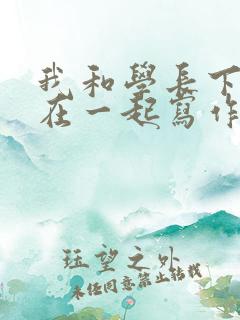 我和學長下
在一起寫作
珏望之外
未任同意禁止轉載